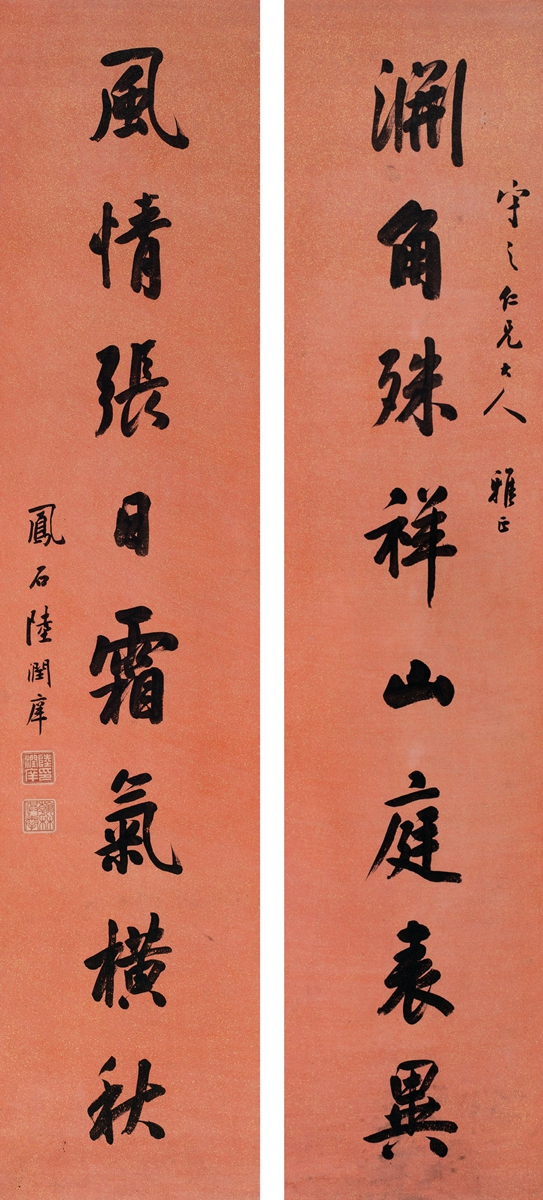 守之仁兄大人 雅正
淵角殊祥山庭表異
風情張日霜氣橫秋
鳳石陸潤庠
陸印潤庠